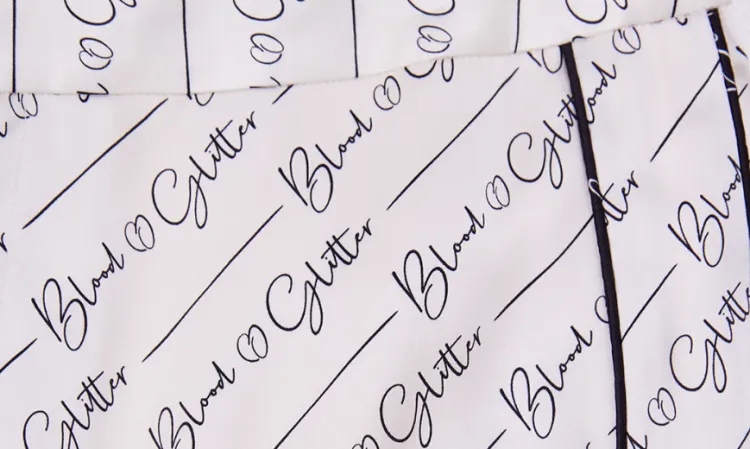 Blood Glitter
Glitter Blood
Blood Glitter
Blood Glitter
Glitter
Blood
Blood